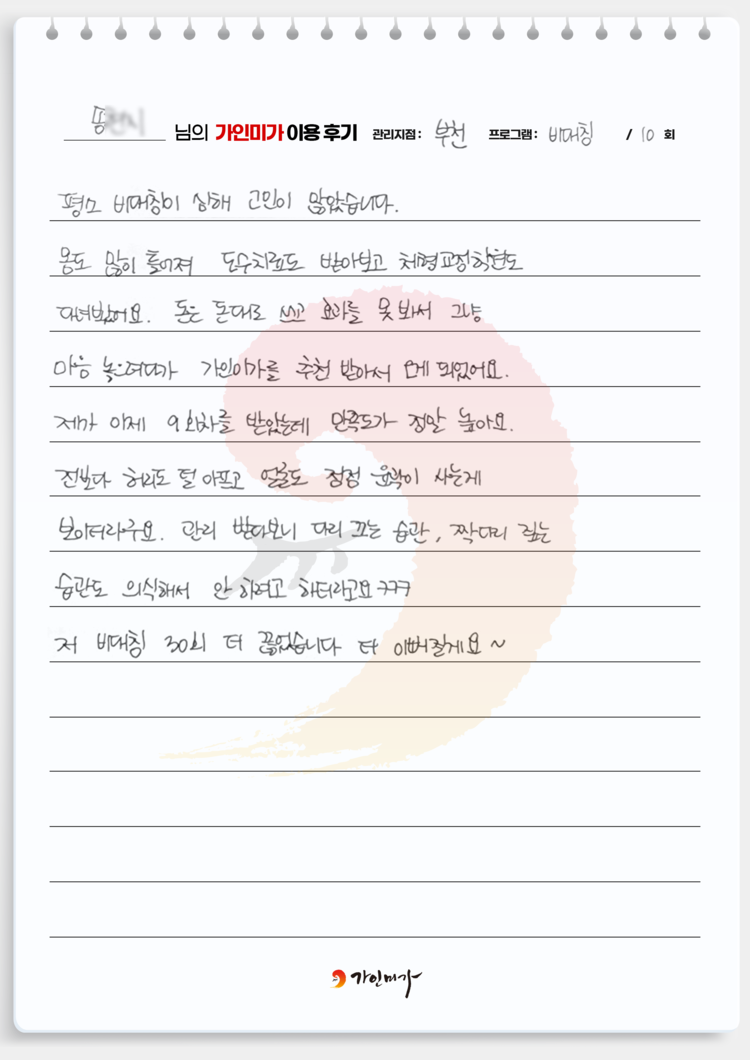 님의 가인미가 이용 후기 관리지점 : 부천 프로그램 : 비대칭 / 10 회
평소 비대칭이 심해 고민이 많았습니다.
몸도 많이 틀어져 도수치료도 받아보고 체형교정학원도
다녀봤어요. 돈은 돈대로 쓰고 효과를 못 봐서 그냥
마음 놓으려다가 가인미가를 추천 받아서 오게 되었어요.
제가 이제 9회차를 받았는데 만족도가 정말 높아요.
전보다 허리도 덜 아프고 얼굴도 점점 윤곽이 사는게
보이더라구요. 관리 받다보니 다리 꼬는 습관, 짝다리 짚는
습관도 의식해서 안 하려고 하더라고요 ㅋㅋㅋ
저 비대칭 30회 더 끊었습니다 더 이뻐질게요 ~
가인미가